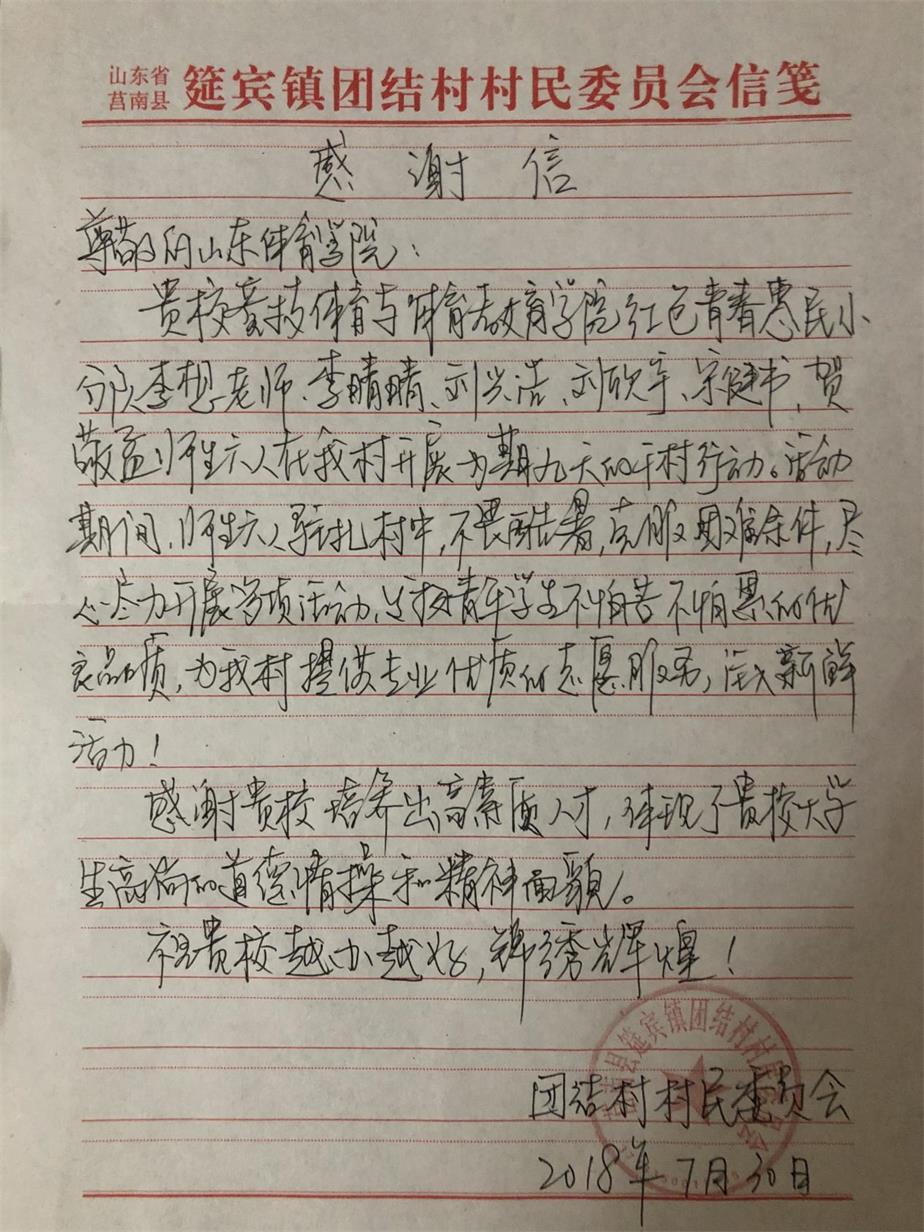 山东省
莒南县 筵宾镇团结村村民委员会信笺
感谢信
尊敬的山东体育学院：
贵校竞技体育与体育教育学院红色青春惠民小
分队李想老师、李晴晴、刘兴浩、刘欣宇、宋健书、贺
敬孟师生六人在我村开展为期九天的千村行动。活动
期间，师生六人驻扎村中，不畏酷暑，克服艰难条件，尽
心尽力开展各项活动，发扬青年学生不怕苦不怕累的优
良品质，为我村提供专业优质的志愿服务，注入新鲜
活力！
感谢贵校培养出高素质人才，体现了贵校大学
生高尚的道德情操和精神面貌。
祝贵校越办越好，锦绣辉煌！
莒南县筵宾镇团结村村民委员会
团结村村民委员会
2018年7月30日